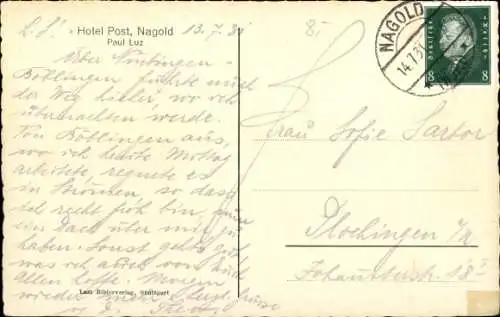 L. S! Hotel Post, Nagold 13.7.31
Paul Luz
Über Nürtingen-
Böblingen führte mich
der Weg hieher, wo ich
übernachten werde.
Von Böblingen aus,
wo ich heute Mittag
arbeitete, regnete es
in Strömen, so dass
ich recht froh bin, ein
Dach über mir zu
haben. Sonst geht's gut,
was ich auch von Euch
Allen hoffe. Morgen
wieder mehr. Herzl. Grüsse
Lass Bilderverlag, Stuttgart
8/
NAGOLD
14.7.31
DEUTSCHES REICH
8 8
Frau Sofie Sartor
Plochingen a/N
Johanniterstr. 18